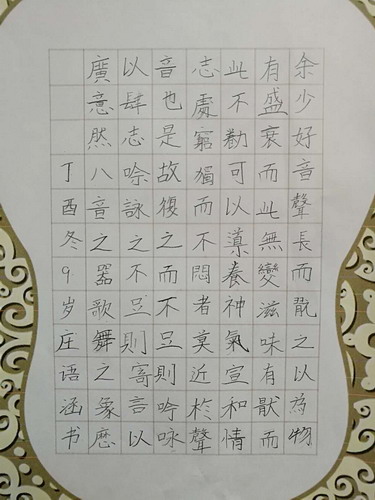 余少好音聲長而翫之以為物
有盛衰而此無變滋味有猒而
此不勌可以導養神氣宣和情
志處窮獨而不悶者莫近於聲
音也是故復之而不足則吟咏
以肆志唫詠之不足則寄言以
廣意然八音之器歌舞之象厯
丁酉冬9岁庄语涵书